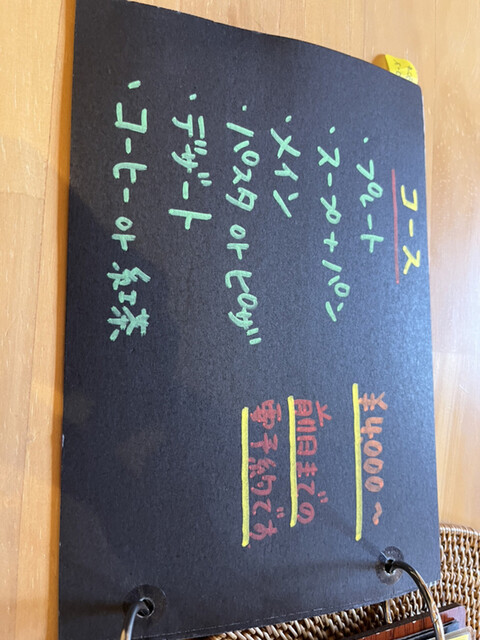 コース
・プレート
・スープ+パン
・メイン
・パスタ or ピザ
・デザート
・コーヒー or 紅茶
¥4,000～
前日までの
要予約です